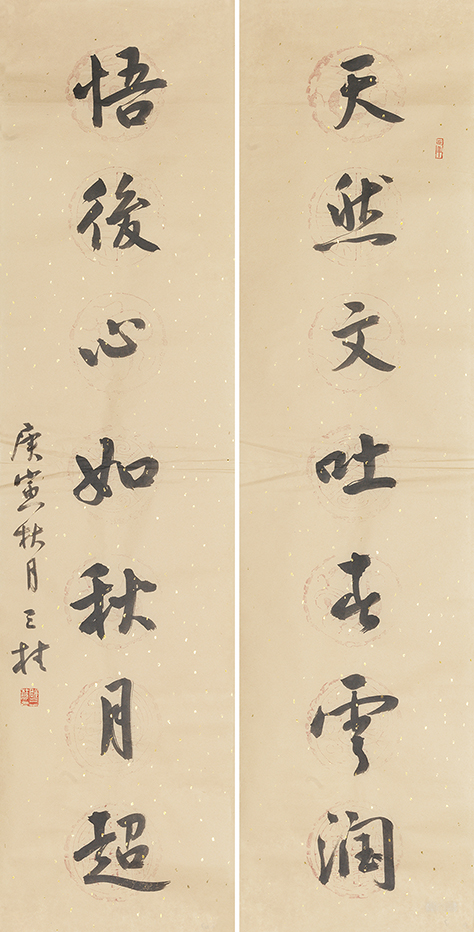 天然文吐春雲润
悟後心如秋月超
庚寅秋月